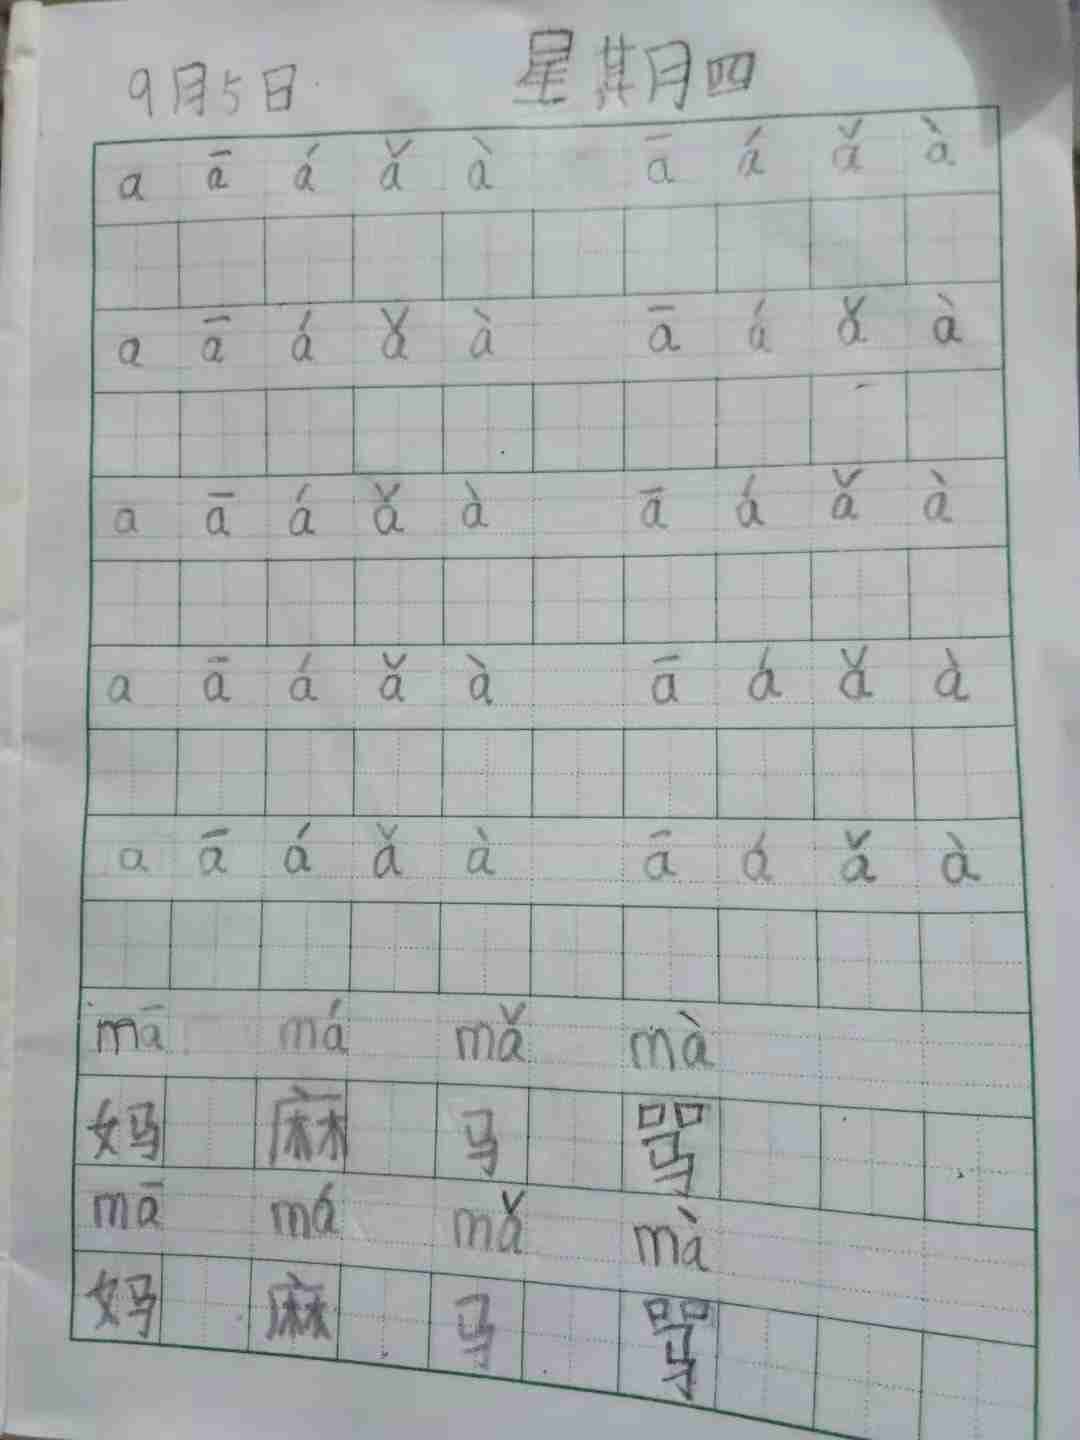 9月5日 星其月四
a ā á ǎ à ā á ǎ à
a ā á ǎ à ā á ǎ à
a ā á ǎ à ā á ǎ à
a ā á ǎ à ā á ǎ à
a ā á ǎ à ā á ǎ à
mā má mǎ mà
妈 麻 马 骂
mā má mǎ mà
妈 麻 马 骂